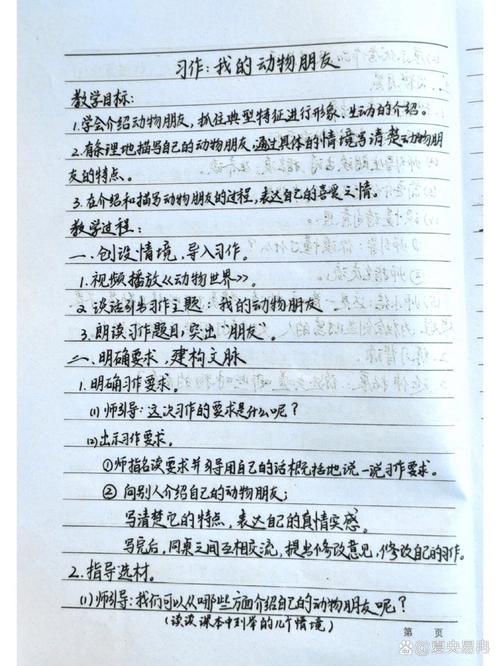 习作:我的动物朋友
教学目标:
1.学会介绍动物朋友,抓住典型特征进行形象、生动的介绍。
2.有条理地描写自己的动物朋友,通过具体的情境写清楚动物朋
友的特点。
3.在介绍和描写动物朋友的过程,表达自己的喜爱之情。
教学过程:
一、创设情境,导入习作。
1.视频播放《动物世界》。
2.谈话引出习作主题:我的动物朋友
3.朗读习作题目,突出“朋友”。
二、明确要求,建构文脉
1.明确习作要求。
(1)师引导:这次习作的要求是什么呢?
(2)出示习作要求。
①师指名读要求并引导用自己的话概括地说一说习作要求。
②向别人介绍自己的动物朋友;
写清楚它的特点,表达自己的真情实感。
写完后,同桌之间互相交流,提出修改意见,修改自己的习作。
2.指导选材。
(1)师引导:我们可以从哪些方面介绍自己的动物朋友呢?
(谈谈课本中列举的几个情境)
第 页